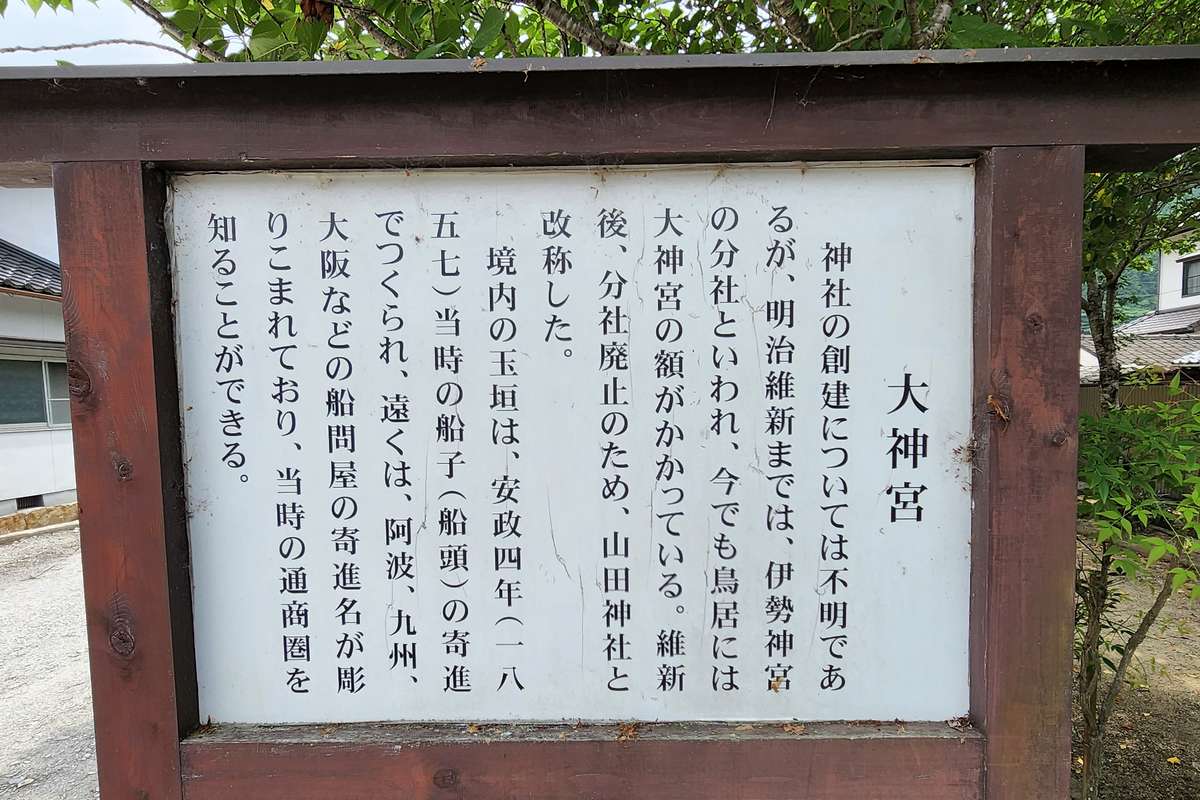 大神宮
神社の創建については不明であ
るが、明治維新までは、伊勢神宮
の分社といわれ、今でも鳥居には
大神宮の額がかかっている。維新
後、分社廃止のため、山田神社と
改称した。
境内の玉垣は、安政四年(一八
五七)当時の船子(船頭)の寄進
でつくられ、遠くは、阿波、九州、
大阪などの船問屋の寄進名が彫
りこまれており、当時の通商圏を
知ることができる。